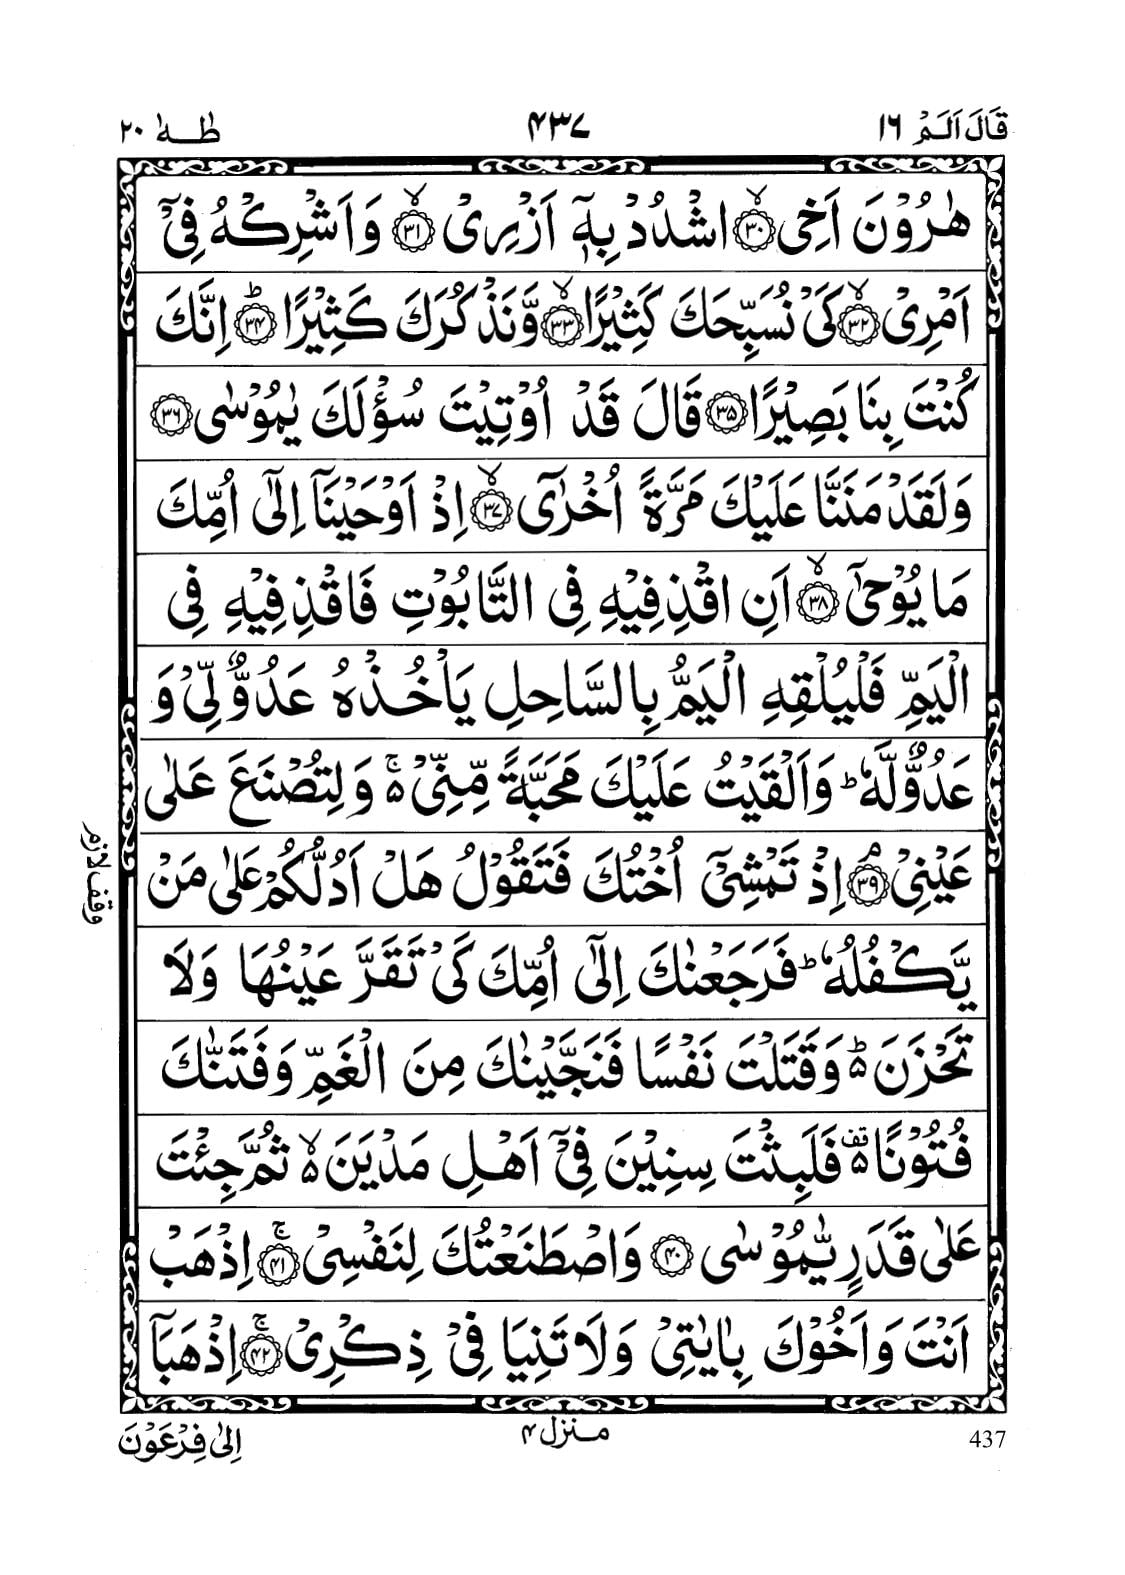 قَالَ اَلَمْ ١٦ ۴۳۷ طٰهٰ ٢٠
هٰرُوْنَ اَخِى ﴿۳۰﴾ۙ اشْدُدْ بِهٖۤ اَزْرِىْ ﴿۳۱﴾ۙ وَاَشْرِكْهُ فِىْۤ
اَمْرِىْ ﴿۳۲﴾ۙ كَىْ نُسَبِّحَكَ كَثِيْرًا ﴿۳۳﴾ۙ وَّنَذْكُرَكَ كَثِيْرًا ﴿۳۴﴾ؕ اِنَّكَ
كُنْتَ بِنَا بَصِيْرًا ﴿۳۵﴾ قَالَ قَدْ اُوْتِيْتَ سُؤْلَكَ يٰمُوْسٰى ﴿۳۶﴾
وَلَقَدْ مَنَنَّا عَلَيْكَ مَرَّةً اُخْرٰٓى ﴿۳۷﴾ۙ اِذْ اَوْحَيْنَاۤ اِلٰٓى اُمِّكَ
مَا يُوْحٰٓى ﴿۳۸﴾ۙ اَنِ اقْذِفِيْهِ فِى التَّابُوْتِ فَاقْذِفِيْهِ فِى
الْيَمِّ فَلْيُلْقِهِ الْيَمُّ بِالسَّاحِلِ يَاْخُذْهُ عَدُوٌّ لِّىْ وَ
عَدُوٌّ لَّهٗ ؕ وَاَلْقَيْتُ عَلَيْكَ مَحَبَّةً مِّنِّىْ ۵ۚ وَلِتُصْنَعَ عَلٰى
عَيْنِىْ ﴿۳۹﴾ۘ اِذْ تَمْشِىْۤ اُخْتُكَ فَتَقُوْلُ هَلْ اَدُلُّكُمْ عَلٰى مَنْ
وقف لازم
يَّكْفُلُهٗ ؕ فَرَجَعْنٰكَ اِلٰٓى اُمِّكَ كَىْ تَقَرَّ عَيْنُهَا وَلَا
تَحْزَنَ ۵ؕ وَقَتَلْتَ نَفْسًا فَنَجَّيْنٰكَ مِنَ الْغَمِّ وَفَتَنّٰكَ
فُتُوْنًا ۵قف فَلَبِثْتَ سِنِيْنَ فِىْۤ اَهْلِ مَدْيَنَ ۵ۙ ثُمَّ جِئْتَ
عَلٰى قَدَرٍ يّٰمُوْسٰى ﴿۴۰﴾ وَاصْطَنَعْتُكَ لِنَفْسِىْ ﴿۴۱﴾ۚ اِذْهَبْ
اَنْتَ وَاَخُوْكَ بِاٰيٰتِىْ وَلَا تَنِيَا فِىْ ذِكْرِىْ ﴿۴۲﴾ۚ اِذْهَبَاۤ
اِلٰى فِرْعَوْنَ منزل ۴ 437